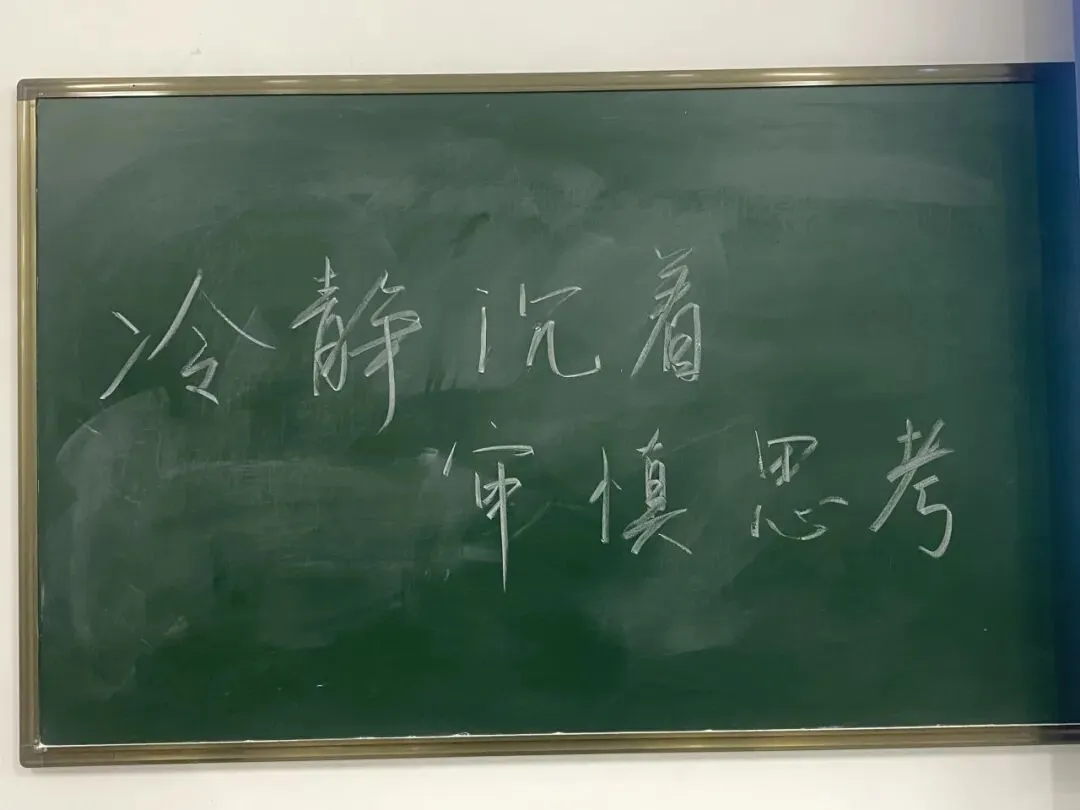 冷静沉着
审慎思考